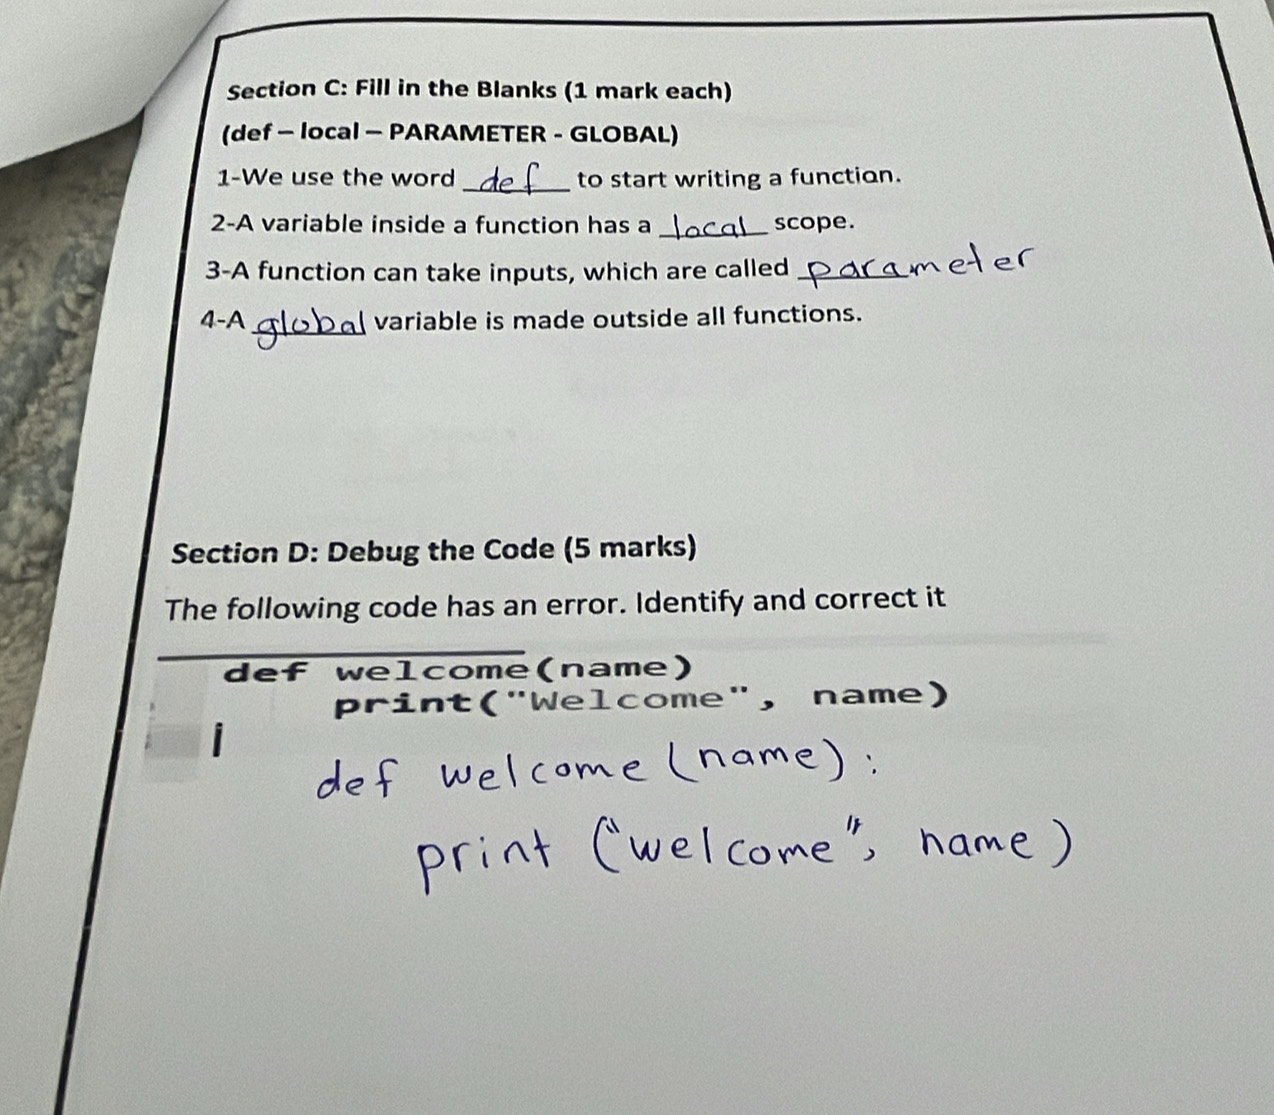 Section C: Fill in the Blanks (1 mark each)
(def – local – PARAMETER - GLOBAL)
1-We use the word def to start writing a function.
2-A variable inside a function has a local scope.
3-A function can take inputs, which are called parameter
4-A global variable is made outside all functions.
Section D: Debug the Code (5 marks)
The following code has an error. Identify and correct it
def welcome(name)
print("Welcome", name)
i
def welcome (name):
print ("welcome", name)